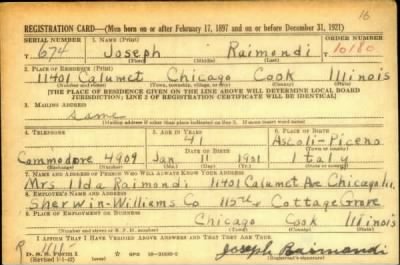 16
REGISTRATION CARD—(Men born on or after February 17, 1897 and on or before December 31, 1921)
SERIAL NUMBER 1. NAME (Print) ORDER NUMBER
T 674 Joseph Raimondi 10180
(First) (Middle) (Last)
2. PLACE OF RESIDENCE (Print)
11401 Calumet Chicago Cook Illinois
(Number and street) (Town, township, village, or city) (County) (State)
[THE PLACE OF RESIDENCE GIVEN ON THE LINE ABOVE WILL DETERMINE LOCAL BOARD
JURISDICTION; LINE 2 OF REGISTRATION CERTIFICATE WILL BE IDENTICAL]
3. MAILING ADDRESS
Same
(Mailing address if other than place indicated on line 2. If same insert word same)
4. TELEPHONE 5. AGE IN YEARS 6. PLACE OF BIRTH
41 Ascoli-Piceno
DATE OF BIRTH
Commodore 4909 Jan 11 1901 Italy
7. NAME AND ADDRESS OF PERSON WHO WILL ALWAYS KNOW YOUR ADDRESS
Mrs Ilda Raimondi 11401 Calumet Ave Chicago Ill.
8. EMPLOYER'S NAME AND ADDRESS
Sherwin-Williams Co 115th & Cottage Grove
9. PLACE OF EMPLOYMENT OR BUSINESS
Chicago Cook Illinois
(Number and street or R. F. D. number) (Town) (County) (State)
I AFFIRM THAT I HAVE VERIFIED ABOVE ANSWERS AND THAT THEY ARE TRUE.
D. S. S. Form 1
(Revised 1-1-42) GPO Joseph Raimondi